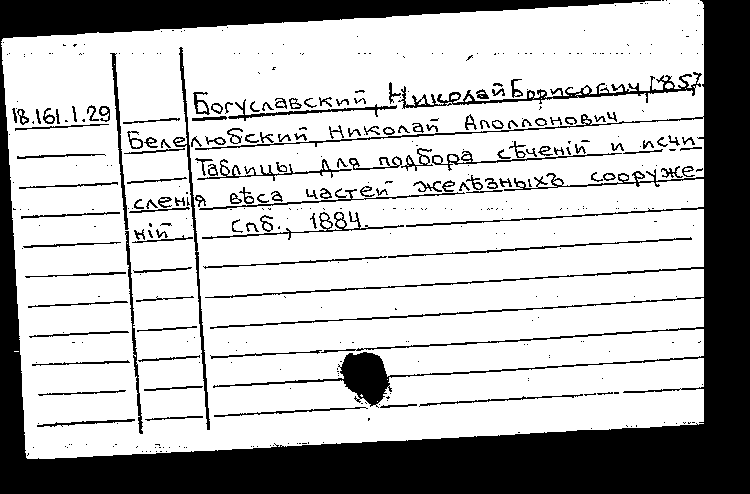 18.161.1.29
Богуславский, Николай Борисович, 1857
Белелюбский, Николай Аполлонович
Таблицы для подбора сѣченій и исчи-
сленія вѣса частей желѣзныхъ сооруже-
ній. Спб., 1884.